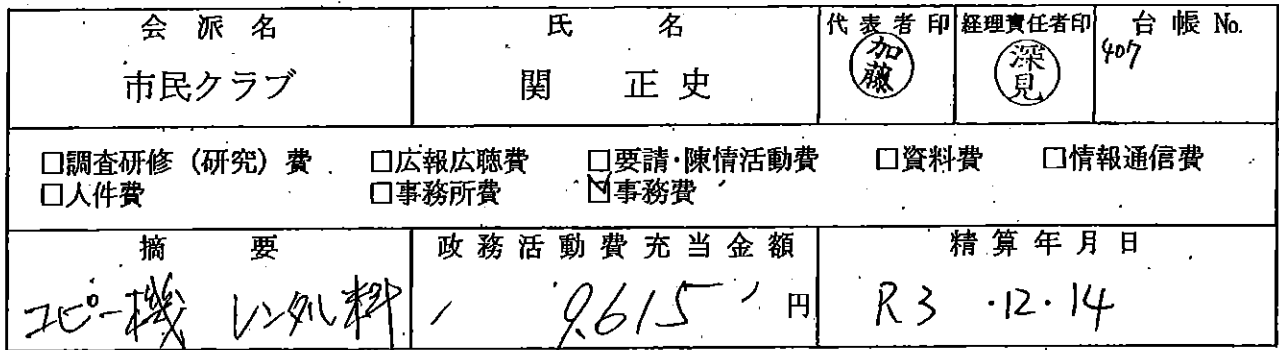 会派名 氏名 代表者印 経理責任者印 台帳 No.
市民クラブ 関 正史 加藤 深見 407
□調査研修(研究)費 □広報広聴費 □要請・陳情活動費 □資料費 □情報通信費
□人件費 □事務所費 ☑事務費
摘要 政務活動費充当金額 精算年月日
コピー機 レンタル料 9,615 円 R3・12・14